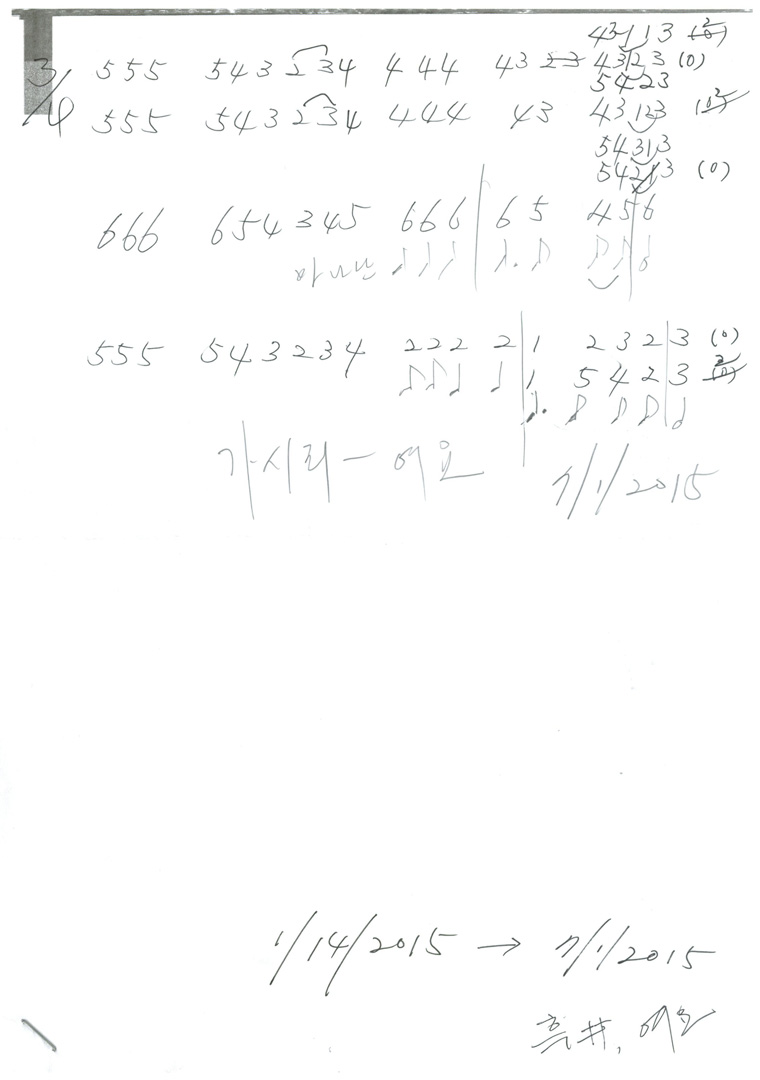 43113
3/4 555 543 234 444 43 23 43123 (0)
5423
555 543 234 444 43 43123
54313
(0)
666 654 345 666 | 65 45 | 6
555 543234 222 2 | 1 232 | 3 (0)
1 542 | 3
가시리 - 여요 7/1/2015
1/14/2015 → 7/1/2015